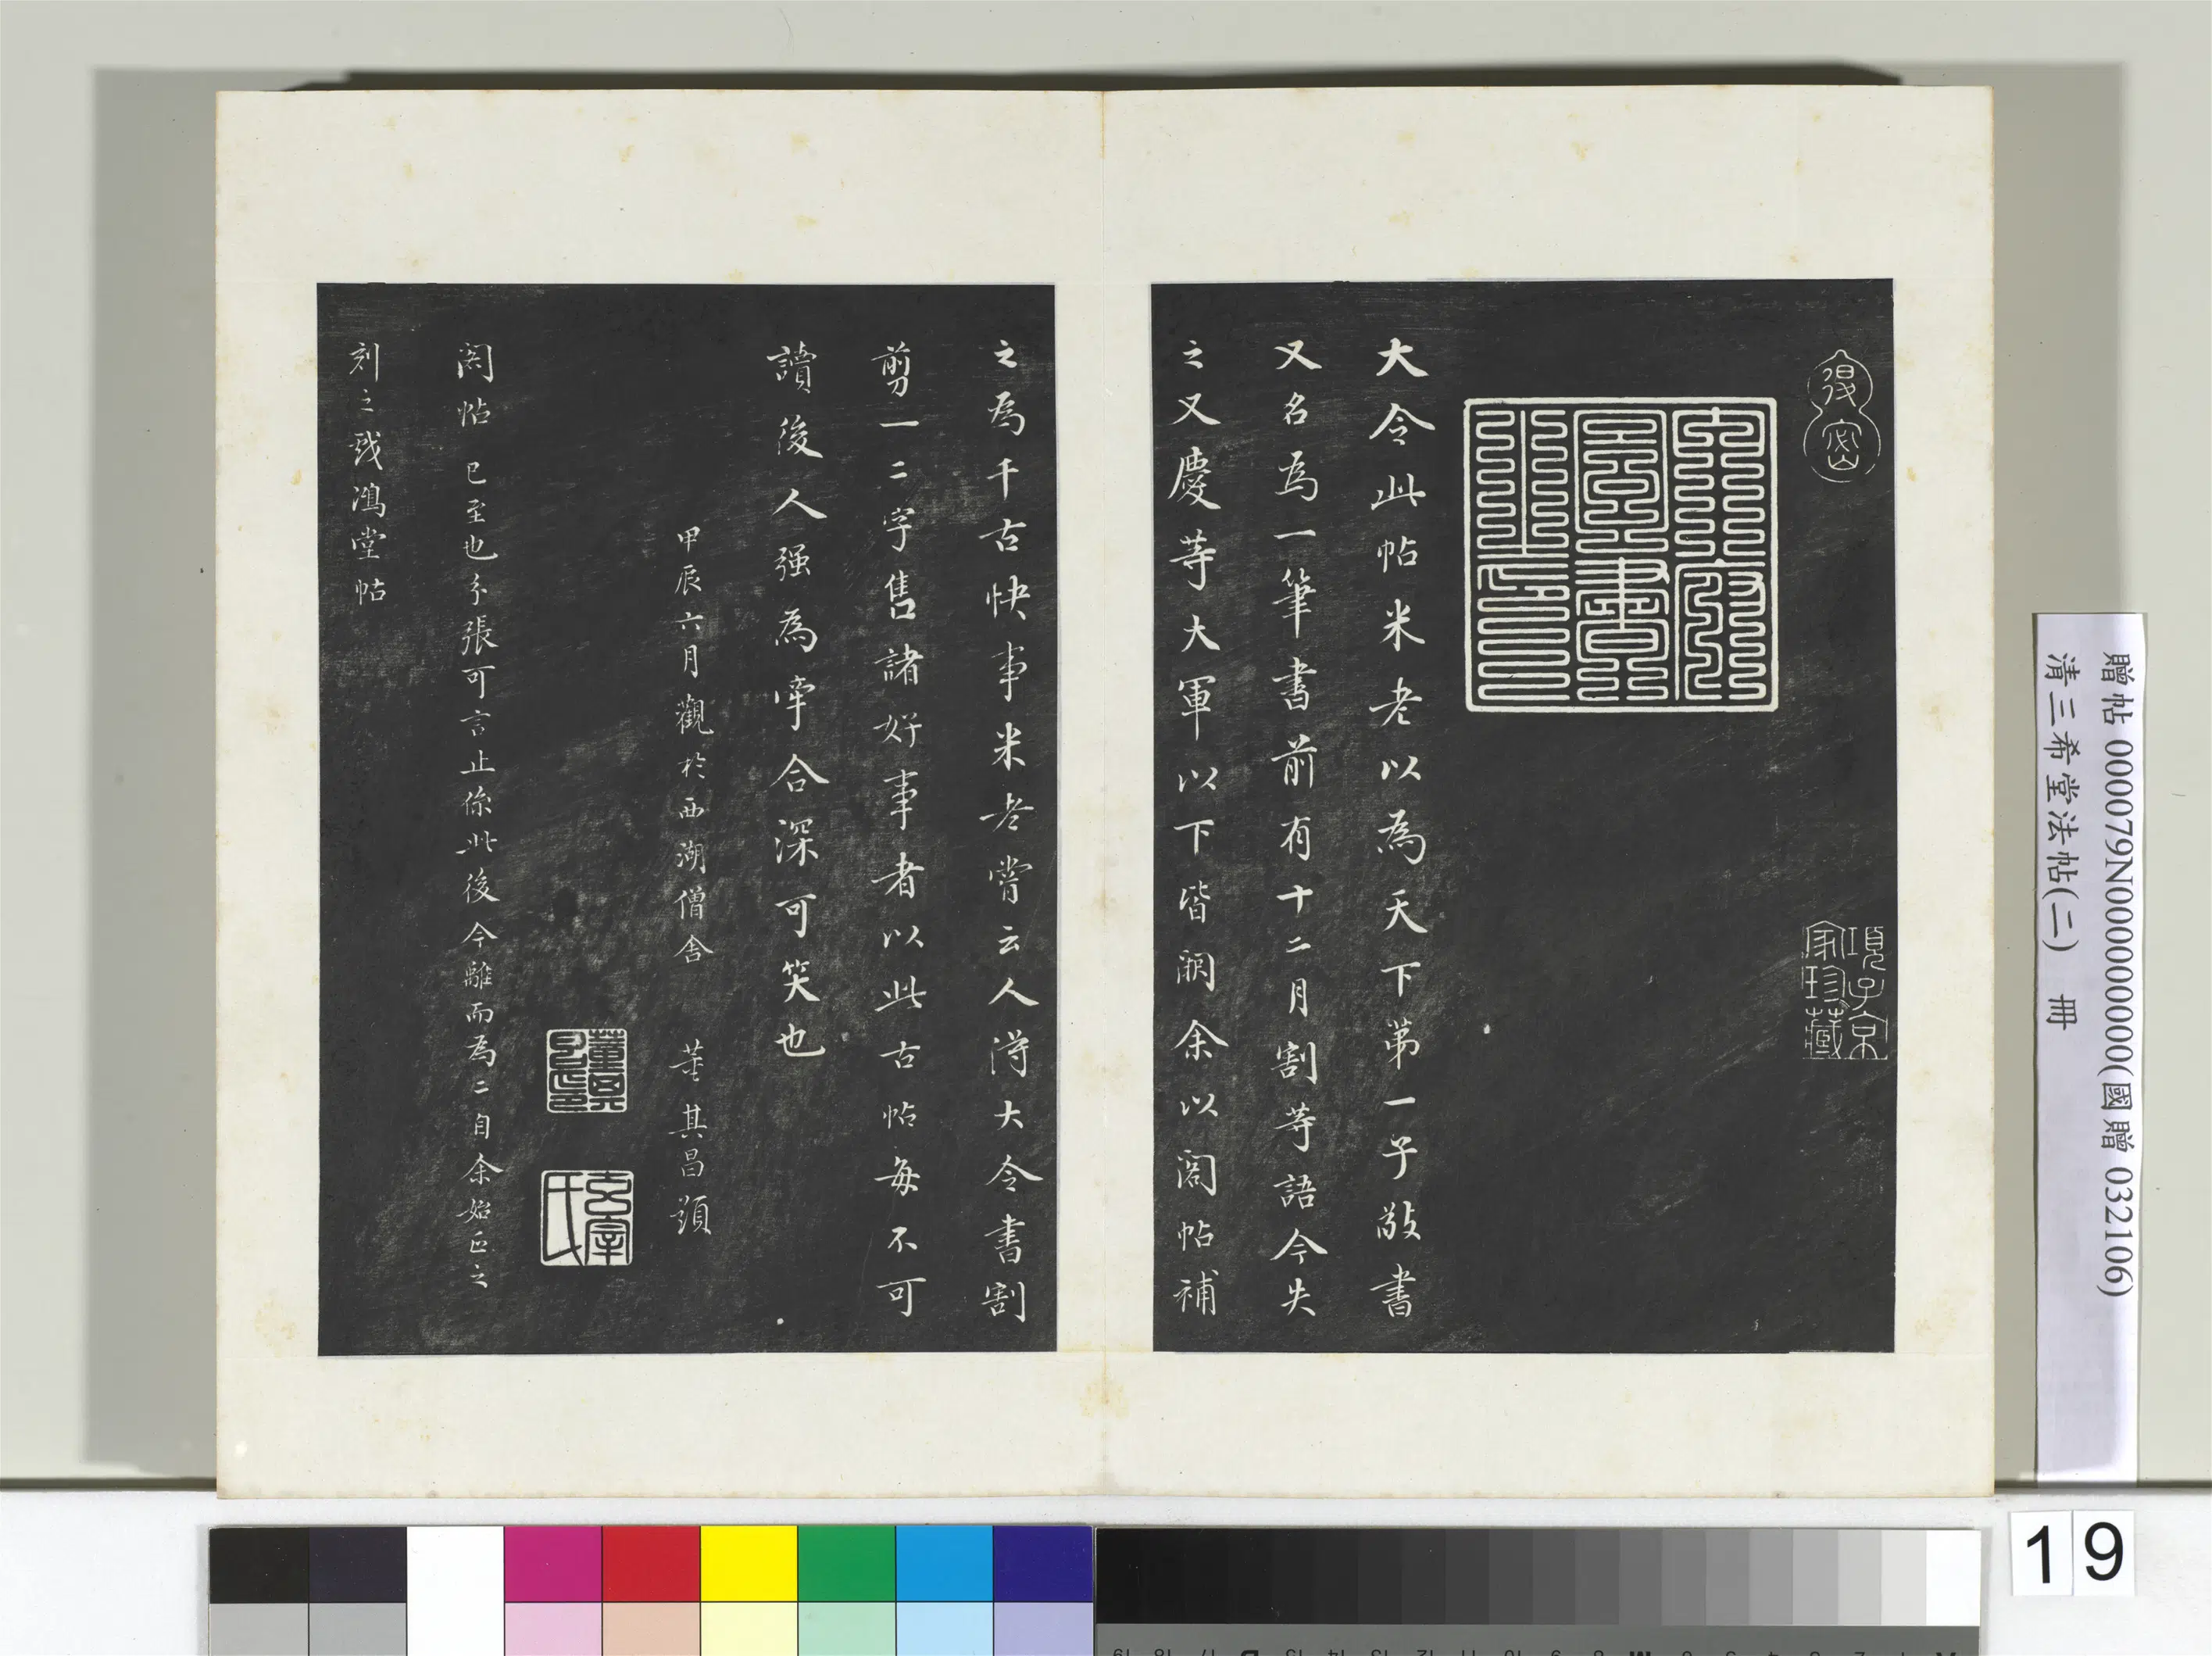 大令此帖米老以為天下第一子敬書
又名為一筆書前有十二月割等語今失
之又慶等大軍以下皆闕余以閣帖補
之為千古快事米老嘗云人得大令書割
剪一二字售諸好事者以此古帖每不可
讀後人强為牽合深可笑也
甲辰六月觀於西湖僧舍 董其昌題
閣帖 已至也分張可言止係此後今離而為二自余始正之
刻之戲鴻堂帖
項子京
家珍藏
玄宰
氏
贈帖 000079N000000000(國贈 032106)
清三希堂法帖(二) 冊
19